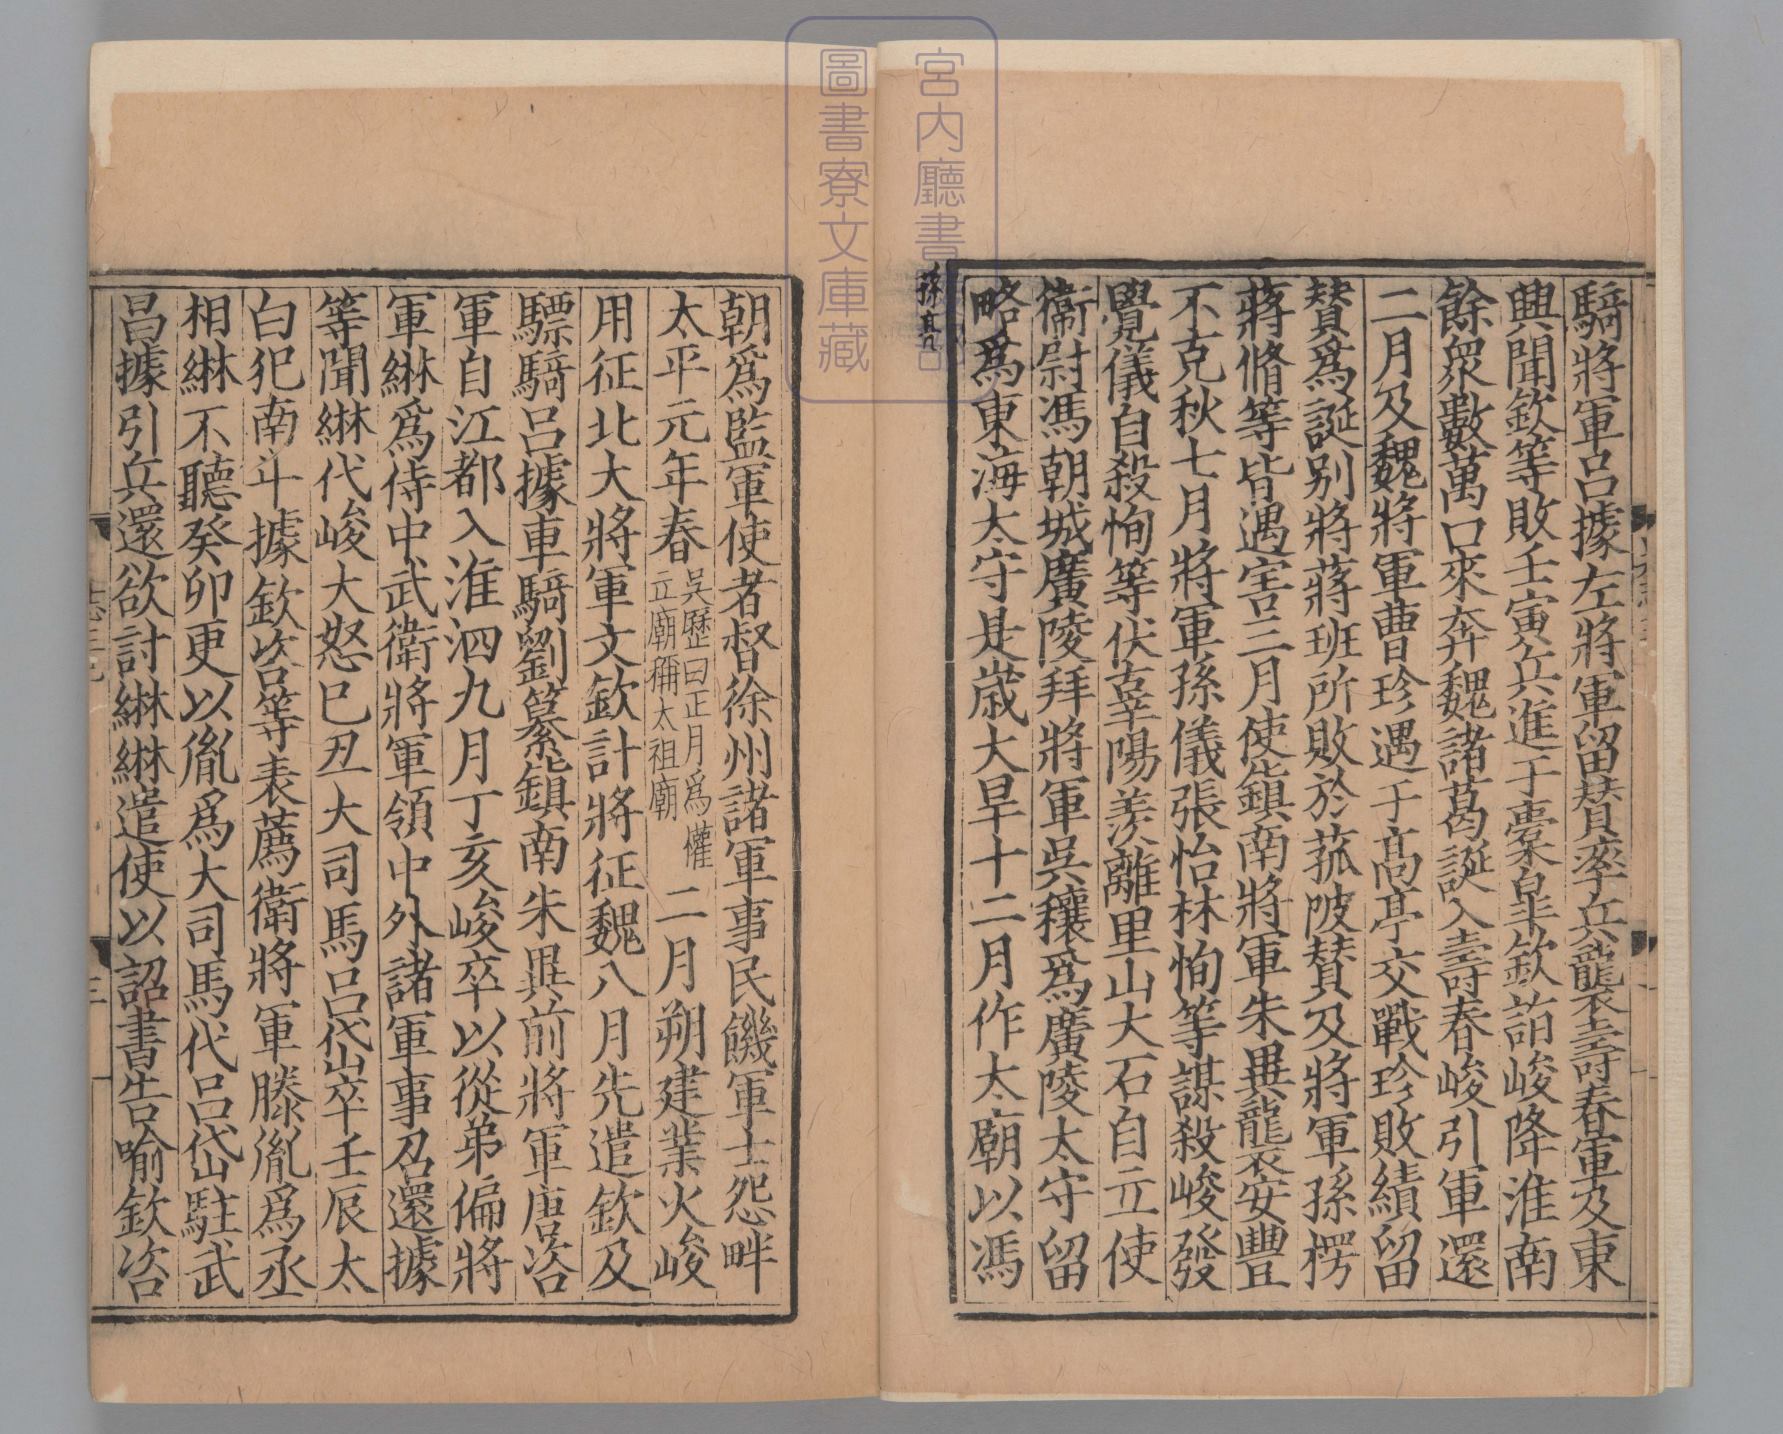 騎將軍呂據左將軍留賛率兵襲壽春軍及東
興聞欽等敗壬寅兵進于橐皐欽詣峻降淮南
餘衆數萬口來奔魏諸葛誕入壽春峻引軍還
二月及魏將軍曹珍遇于高亭交戰珍敗績留
賛爲誕别將蔣班所敗於菰陂賛及將軍孫楞
蔣脩等皆遇害三月使鎮南將軍朱異襲安豐
不克秋七月將軍孫儀張怡林恂等謀殺峻發
覺儀自殺恂等伏辜陽羡離里山大石自立使
衞尉馮朝城廣陵拜將軍吳穰爲廣陵太守留
略爲東海太守是歳大旱十二月作太廟以馮
孫亮
朝爲監軍使者督徐州諸軍事民饑軍士怨畔
太平元年春吳歷曰正月爲權立廟稱太祖廟二月朔建業火峻
用征北大將軍文欽計將征魏八月先遣欽及
驃騎呂據車騎劉纂鎮南朱異前將軍唐咨
軍自江都入淮泗九月丁亥峻卒以從弟偏將
軍綝爲侍中武衛將軍領中外諸軍事召還據
等聞綝代峻大怒巳丑大司馬呂岱卒壬辰太
白犯南斗據欽咨等表薦衛將軍滕胤爲丞
相綝不聽癸卯更以胤爲大司馬代呂岱駐武
昌據引兵還欲討綝綝遣使以詔書告喻欽咨
宮内廳書
圖書寮文庫藏